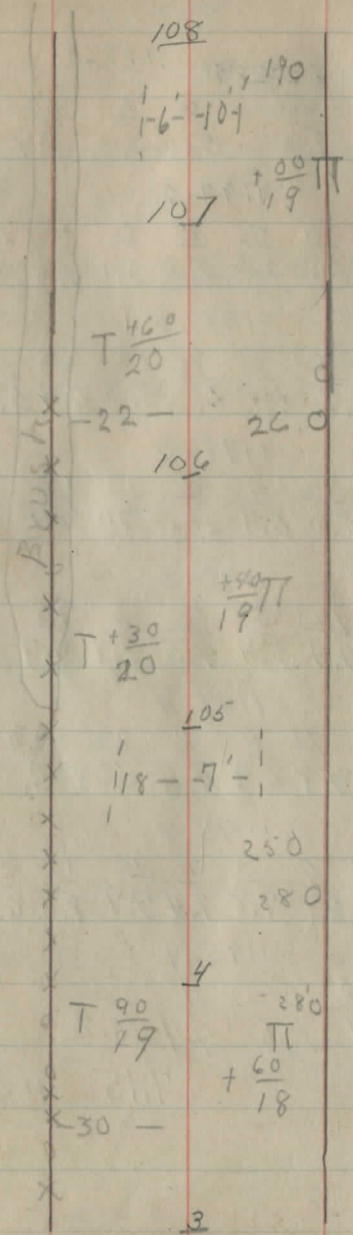 108
190
1-6- -10-1
+ 00/19 Π
107
T 460/20
0
-22 - 26 0
106
Brush
+40/19 Π
T +30/20
105
118 - -7' -
250
280
4
280
T 90/19 Π
+ 60/18
-30 -
3